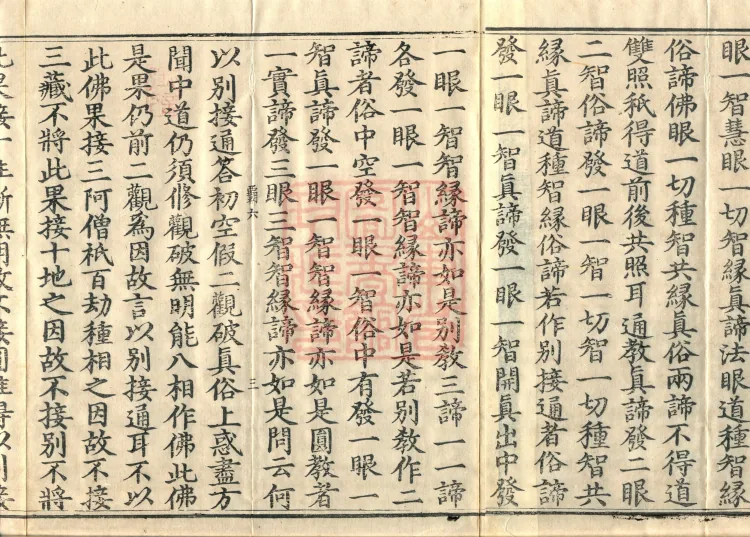 眼一智慧眼一切智緣眞諦法眼道種智緣
俗諦佛眼一切種智共緣眞俗兩諦不得道
雙照秖得道前後共照耳通教眞諦發二眼
二智俗諦發一眼一智一切智一切種智共
緣眞諦道種智緣俗諦若作別接通者俗諦
發一眼一智眞諦發一眼一智開眞出中發
一眼一智智緣諦亦如是別教三諦一一諦
各發一眼一智智緣諦亦如是若別教作二
諦者俗中空發一眼一智俗中有發一眼一
智眞諦發一眼一智智緣諦亦如是圓教者
一實諦發三眼三智智緣諦亦如是問云何
霸六
三
以別接通答初空假二觀破眞俗上惑盡方
聞中道仍須修觀破無明能八相作佛此佛
是果仍前二觀爲因故言以別接通耳不以
此佛果接三阿僧祇百劫種相之因故不接
三藏不將此果接十地之因故不接別不將